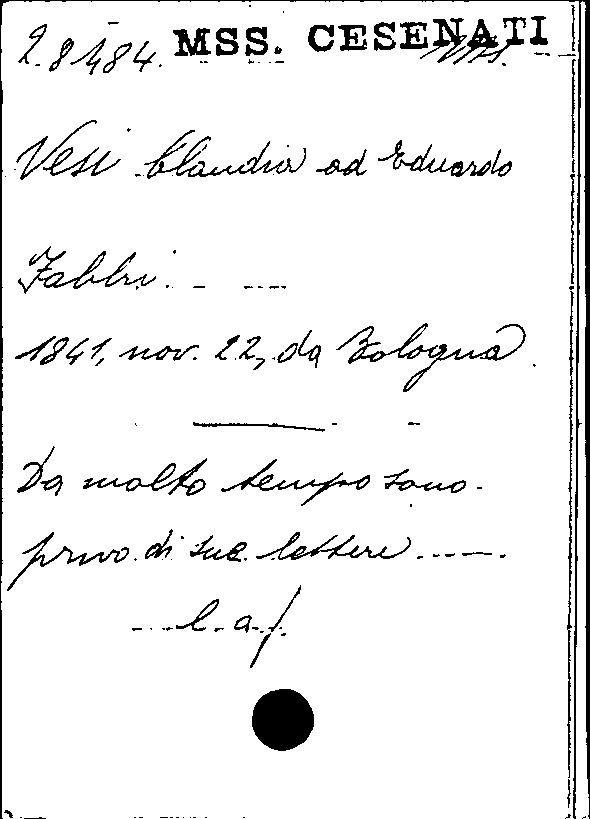 2.8484. MSS. CESENATI
Vesi Claudia ad Eduardo
Fabbri.
1841, nov. 22, da Bologna.
Da molto tempo sono
privo di sue lettere .....
l. a f.